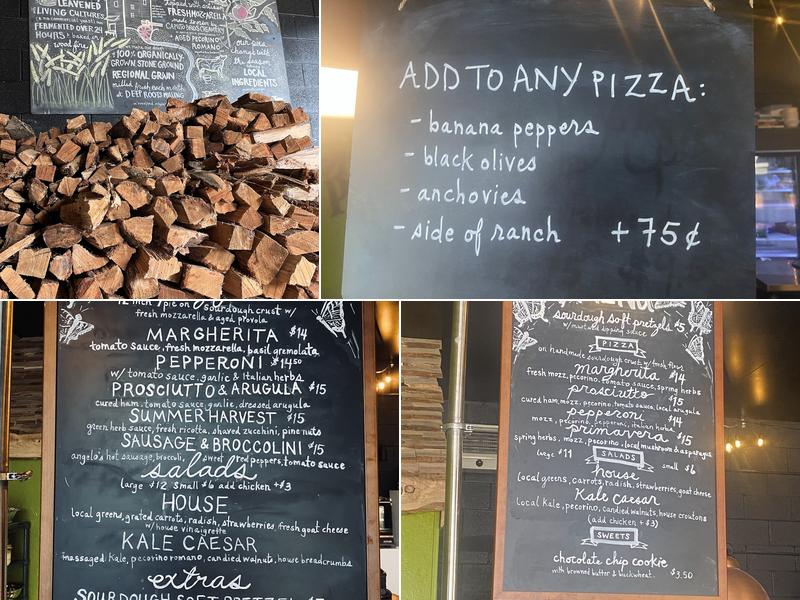 LEAVENED
LIVING CULTURES
FERMENTED OVER 24
HOURS & baked in
wood fire
topped with artisan
FRESH MOZZARELLA
made to order by
CAPUTO BROS CREAMERY
& AGED PECORINO
ROMANO
100% ORGANICALLY
GROWN, STONE GROUND
REGIONAL GRAIN
milled fresh each month
at DEEP ROOTS MILLING
our pizzas
change with
the season
LOCAL
INGREDIENTS
ADD TO ANY PIZZA:
- banana peppers
- black olives
- anchovies
- side of ranch +75¢
12 inch pie on sourdough crust w/
fresh mozzarella & aged provola
MARGHERITA $14
tomato sauce, fresh mozzarella, basil gremolata
PEPPERONI $14.50
w/ tomato sauce, garlic & italian herbs
PROSCIUTTO & ARUGULA $15
cured ham, tomato sauce, garlic, dressed arugula
SUMMER HARVEST $15
green herb sauce, fresh ricotta, shaved zucchini, pine nuts
SAUSAGE & BROCCOLINI $15
angelo's hot sausage, broccoli, sweet red peppers, tomato sauce
salads
large $12 small $6 add chicken +$3
HOUSE
local greens, grated carrots, radish, strawberries, fresh goat cheese
w/ house vinaigrette
KALE CAESAR
massaged kale, pecorino romano, candied walnuts, house breadcrumbs
extras
SOURDOUGH SOFT PRETZELS
sourdough soft pretzels $5
w/ mustard dipping sauce
PIZZA
on handmade sourdough crust w/ fresh flour
margherita $14
fresh mozz, pecorino, tomato sauce, spring herbs
prosciutto $15
cured ham, mozz, pecorino, tomato sauce, local arugula
pepperoni $14
mozz, pecorino, pepperoni, italian herbs
primavera $15
spring herbs, mozz, pecorino, local mushroom & asparagus
large $11 SALADS small $6
house
local greens, carrots, radish, strawberries, goat cheese
Kale Caesar
local kale, pecorino, candied walnuts, house croutons
(add chicken +$3)
SWEETS
chocolate chip cookie
with browned butter & buckwheat. $3.50